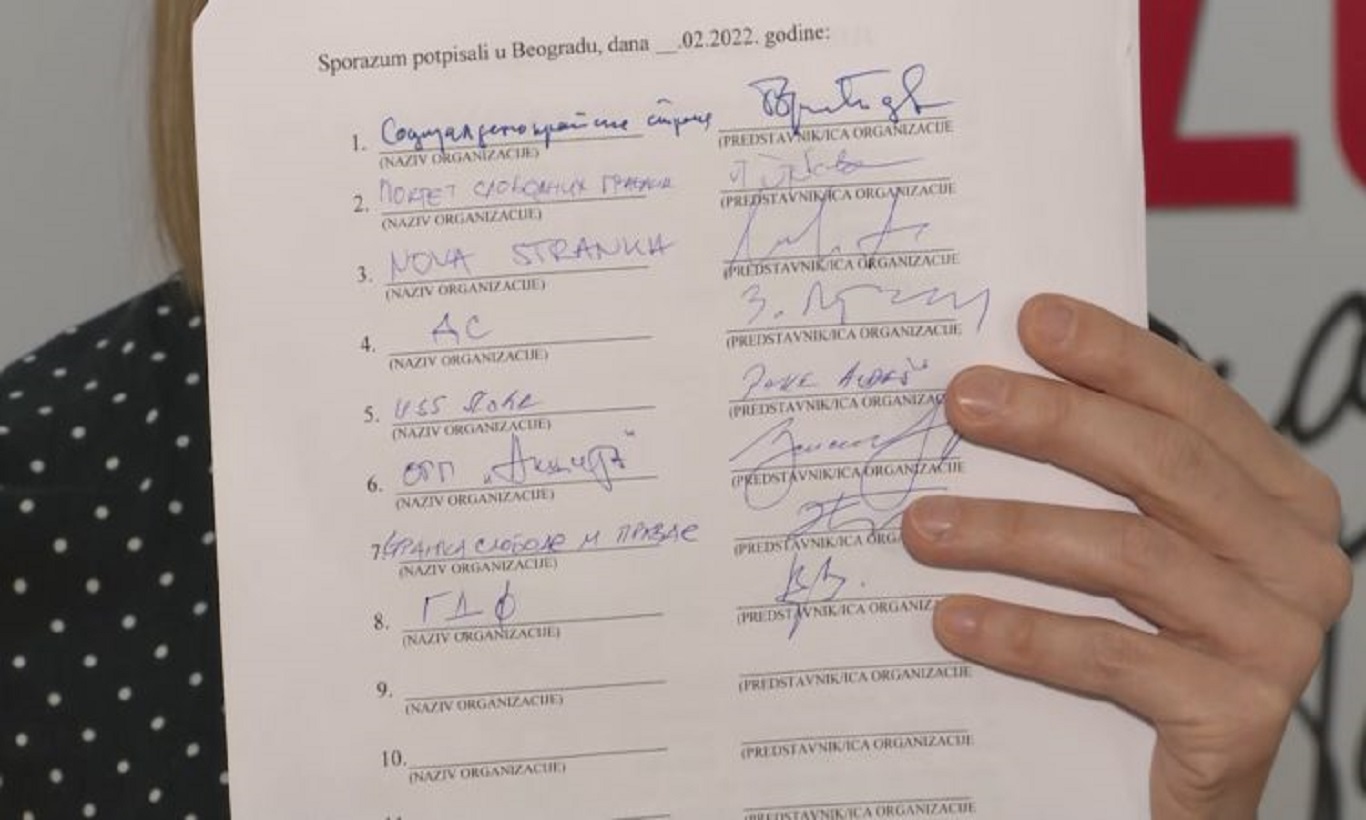 Sporazum potpisali u Beogradu, dana __.02.2022. godine:
1. Социјалдемократске стр
(NAZIV ORGANIZACIJE) (PREDSTAVNIK/ICA ORGANIZACIJE
2. ПОКРЕТ СЛОБОДНИХ ГРАЂАНА
(NAZIV ORGANIZACIJE) (PREDSTAVNIK/ICA ORGANIZACIJE
3. NOVA STRANKA
(NAZIV ORGANIZACIJE) (PREDSTAVNIK/ICA ORGANIZACIJE
4. ДС
(NAZIV ORGANIZACIJE) (PREDSTAVNIK/ICA ORGANIZACIJE
5. USS
(NAZIV ORGANIZACIJE) (PREDSTAVNIK/ICA ORGANIZAC
6. ОПП
(NAZIV ORGANIZACIJE) (PREDSTAVNIK/ICA ORGANIZACIJE
7. СТРАНКА СЛОБОДЕ И ПРАВДЕ
(NAZIV ORGANIZACIJE) (PREDSTAVNIK/ICA ORG
8. ГДФ
(NAZIV ORGANIZACIJE) (PREDSTAVNIK/ICA ORGANIZ
9.
(NAZIV ORGANIZACIJE) (PREDSTAVNIK/ICA ORGANIZACIJE
10.
(NAZIV ORGANIZACIJE) (PREDSTAVNIK/ICA ORGANIZACIJE
(PREDSTAVNIK/ICA ORGANIZACIJE